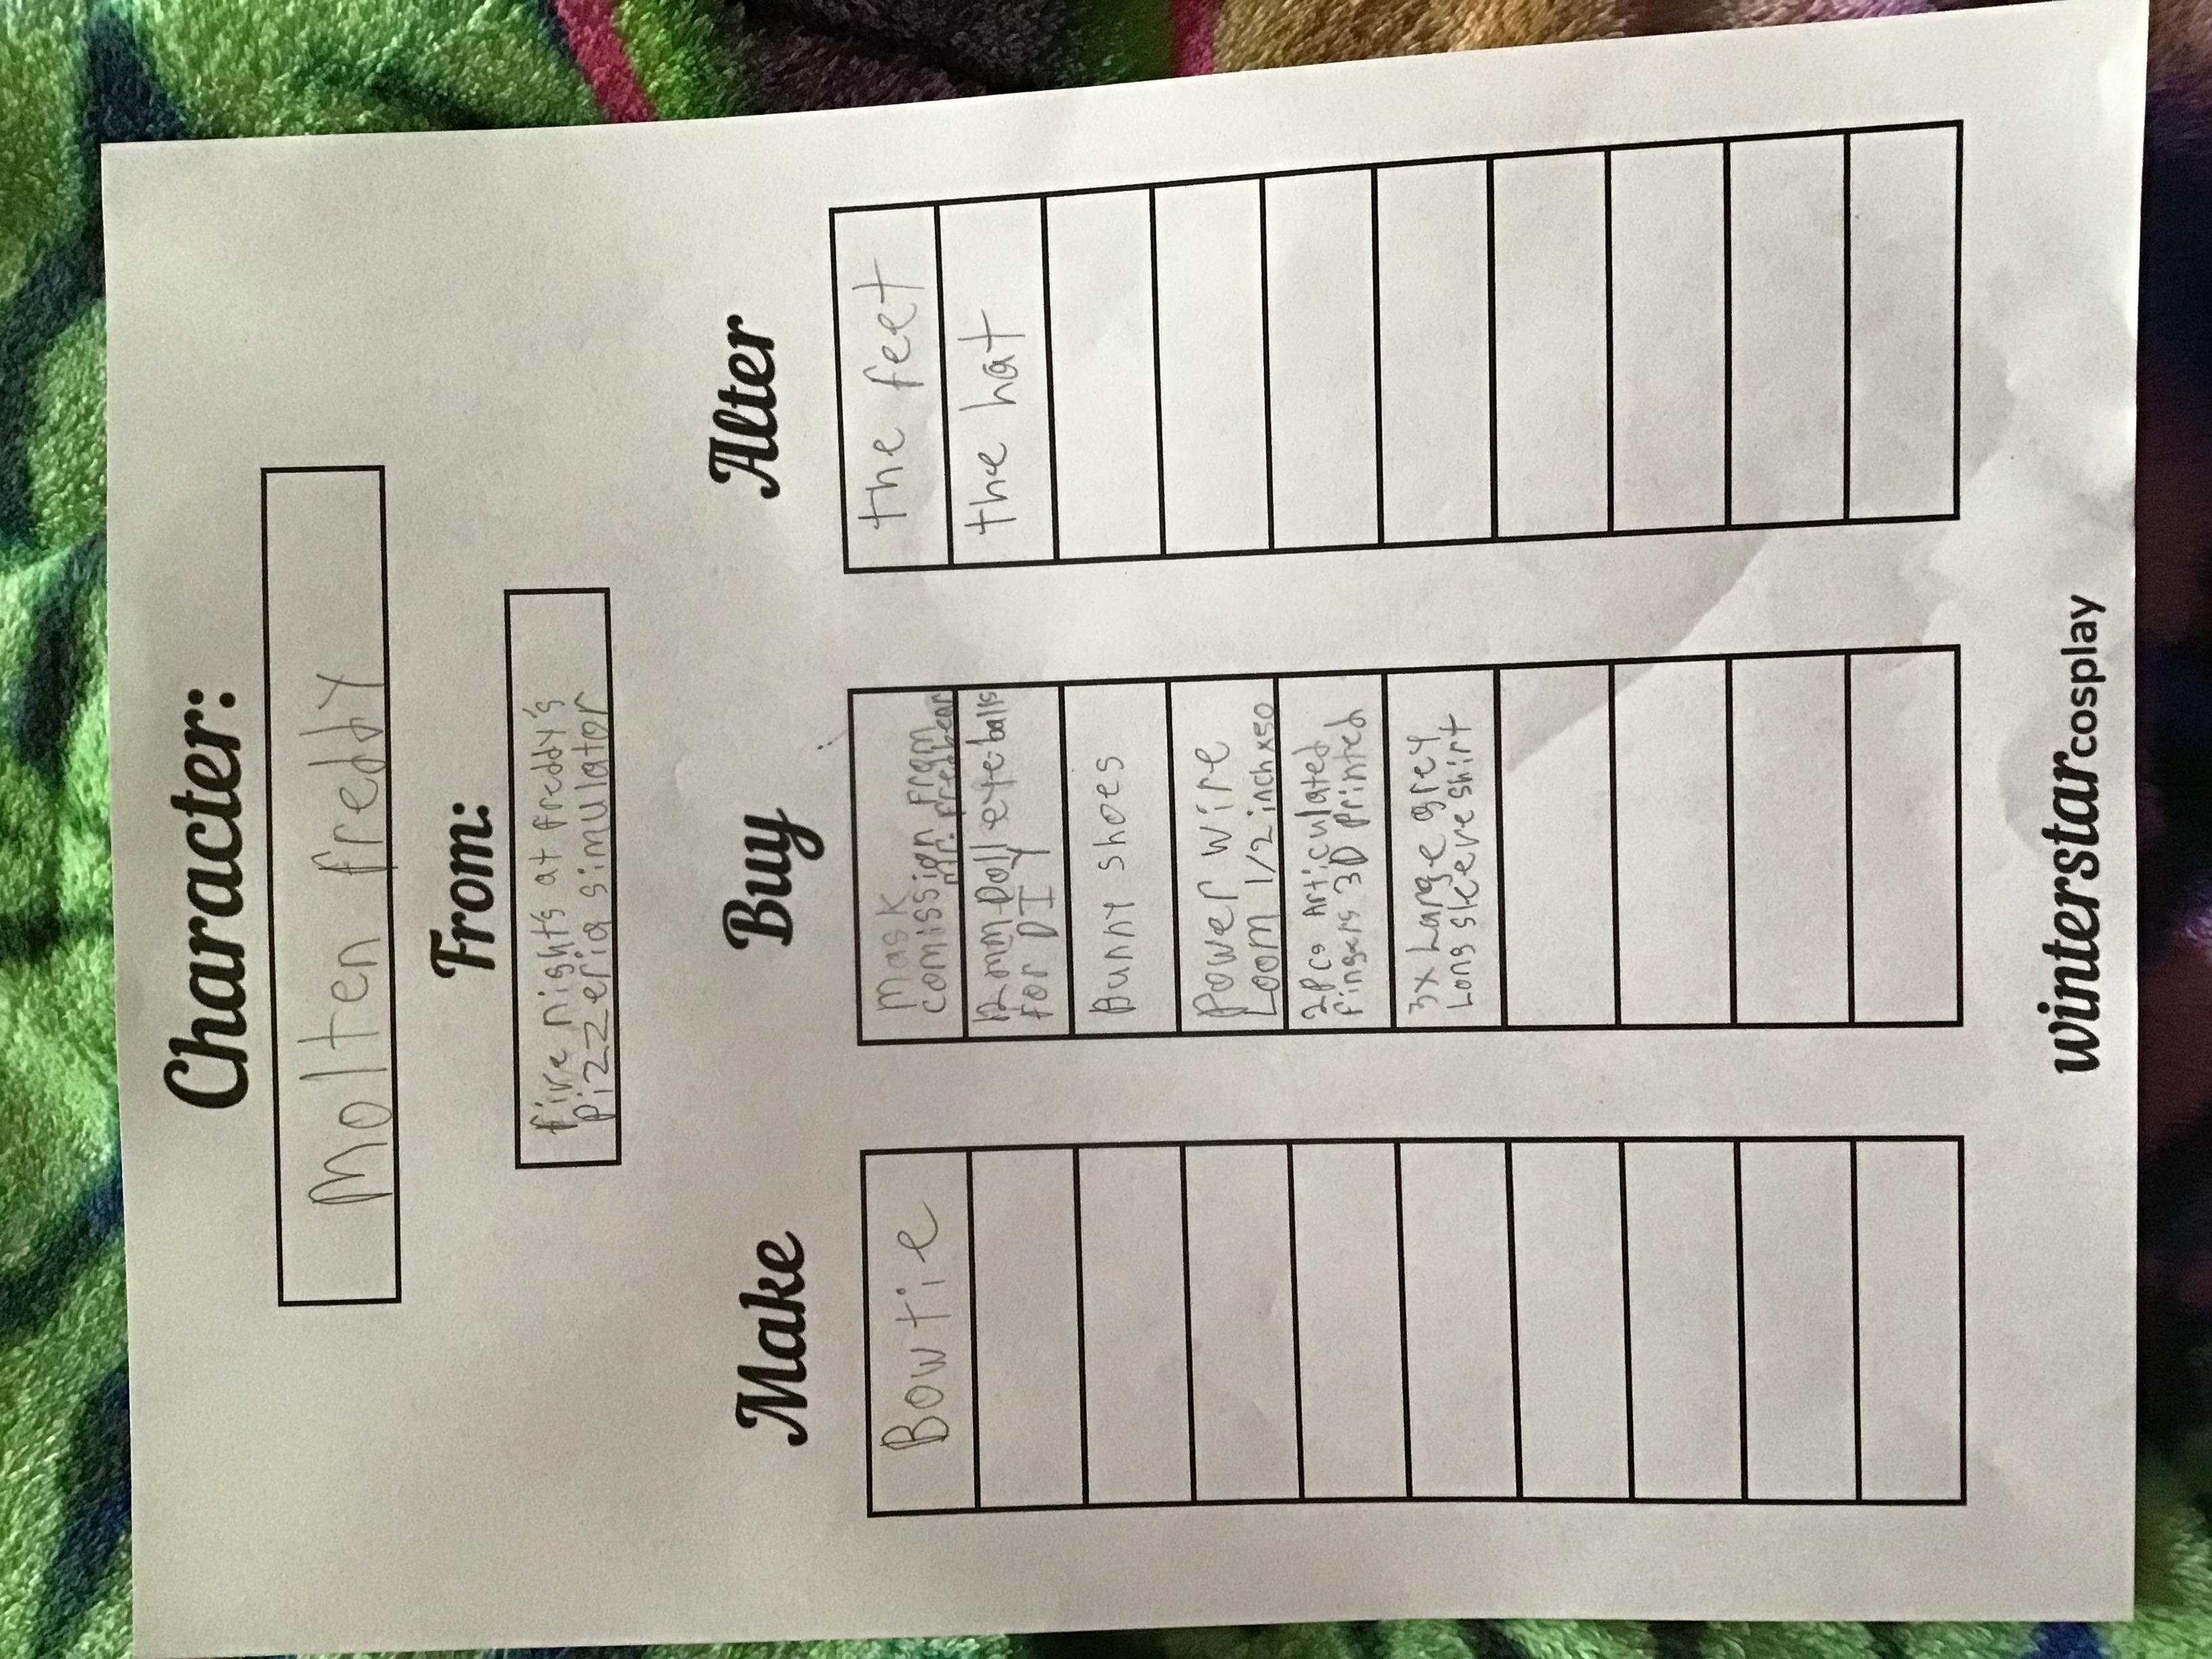 Character:
Molten freddy
From:
five nights at freddy's
pizzeria simulator
Make
Bowtie
Buy
Mask
comission From
Mr. Fredbear
12 mm Doll eyeballs
for DIY
Bunny shoes
Power wire
Loom 1/2 inch x50
2Pcs Articulated
Fingers 3D Printed
3x Large grey
Long sleeve shirt
Alter
the feet
the hat
winterstarcosplay